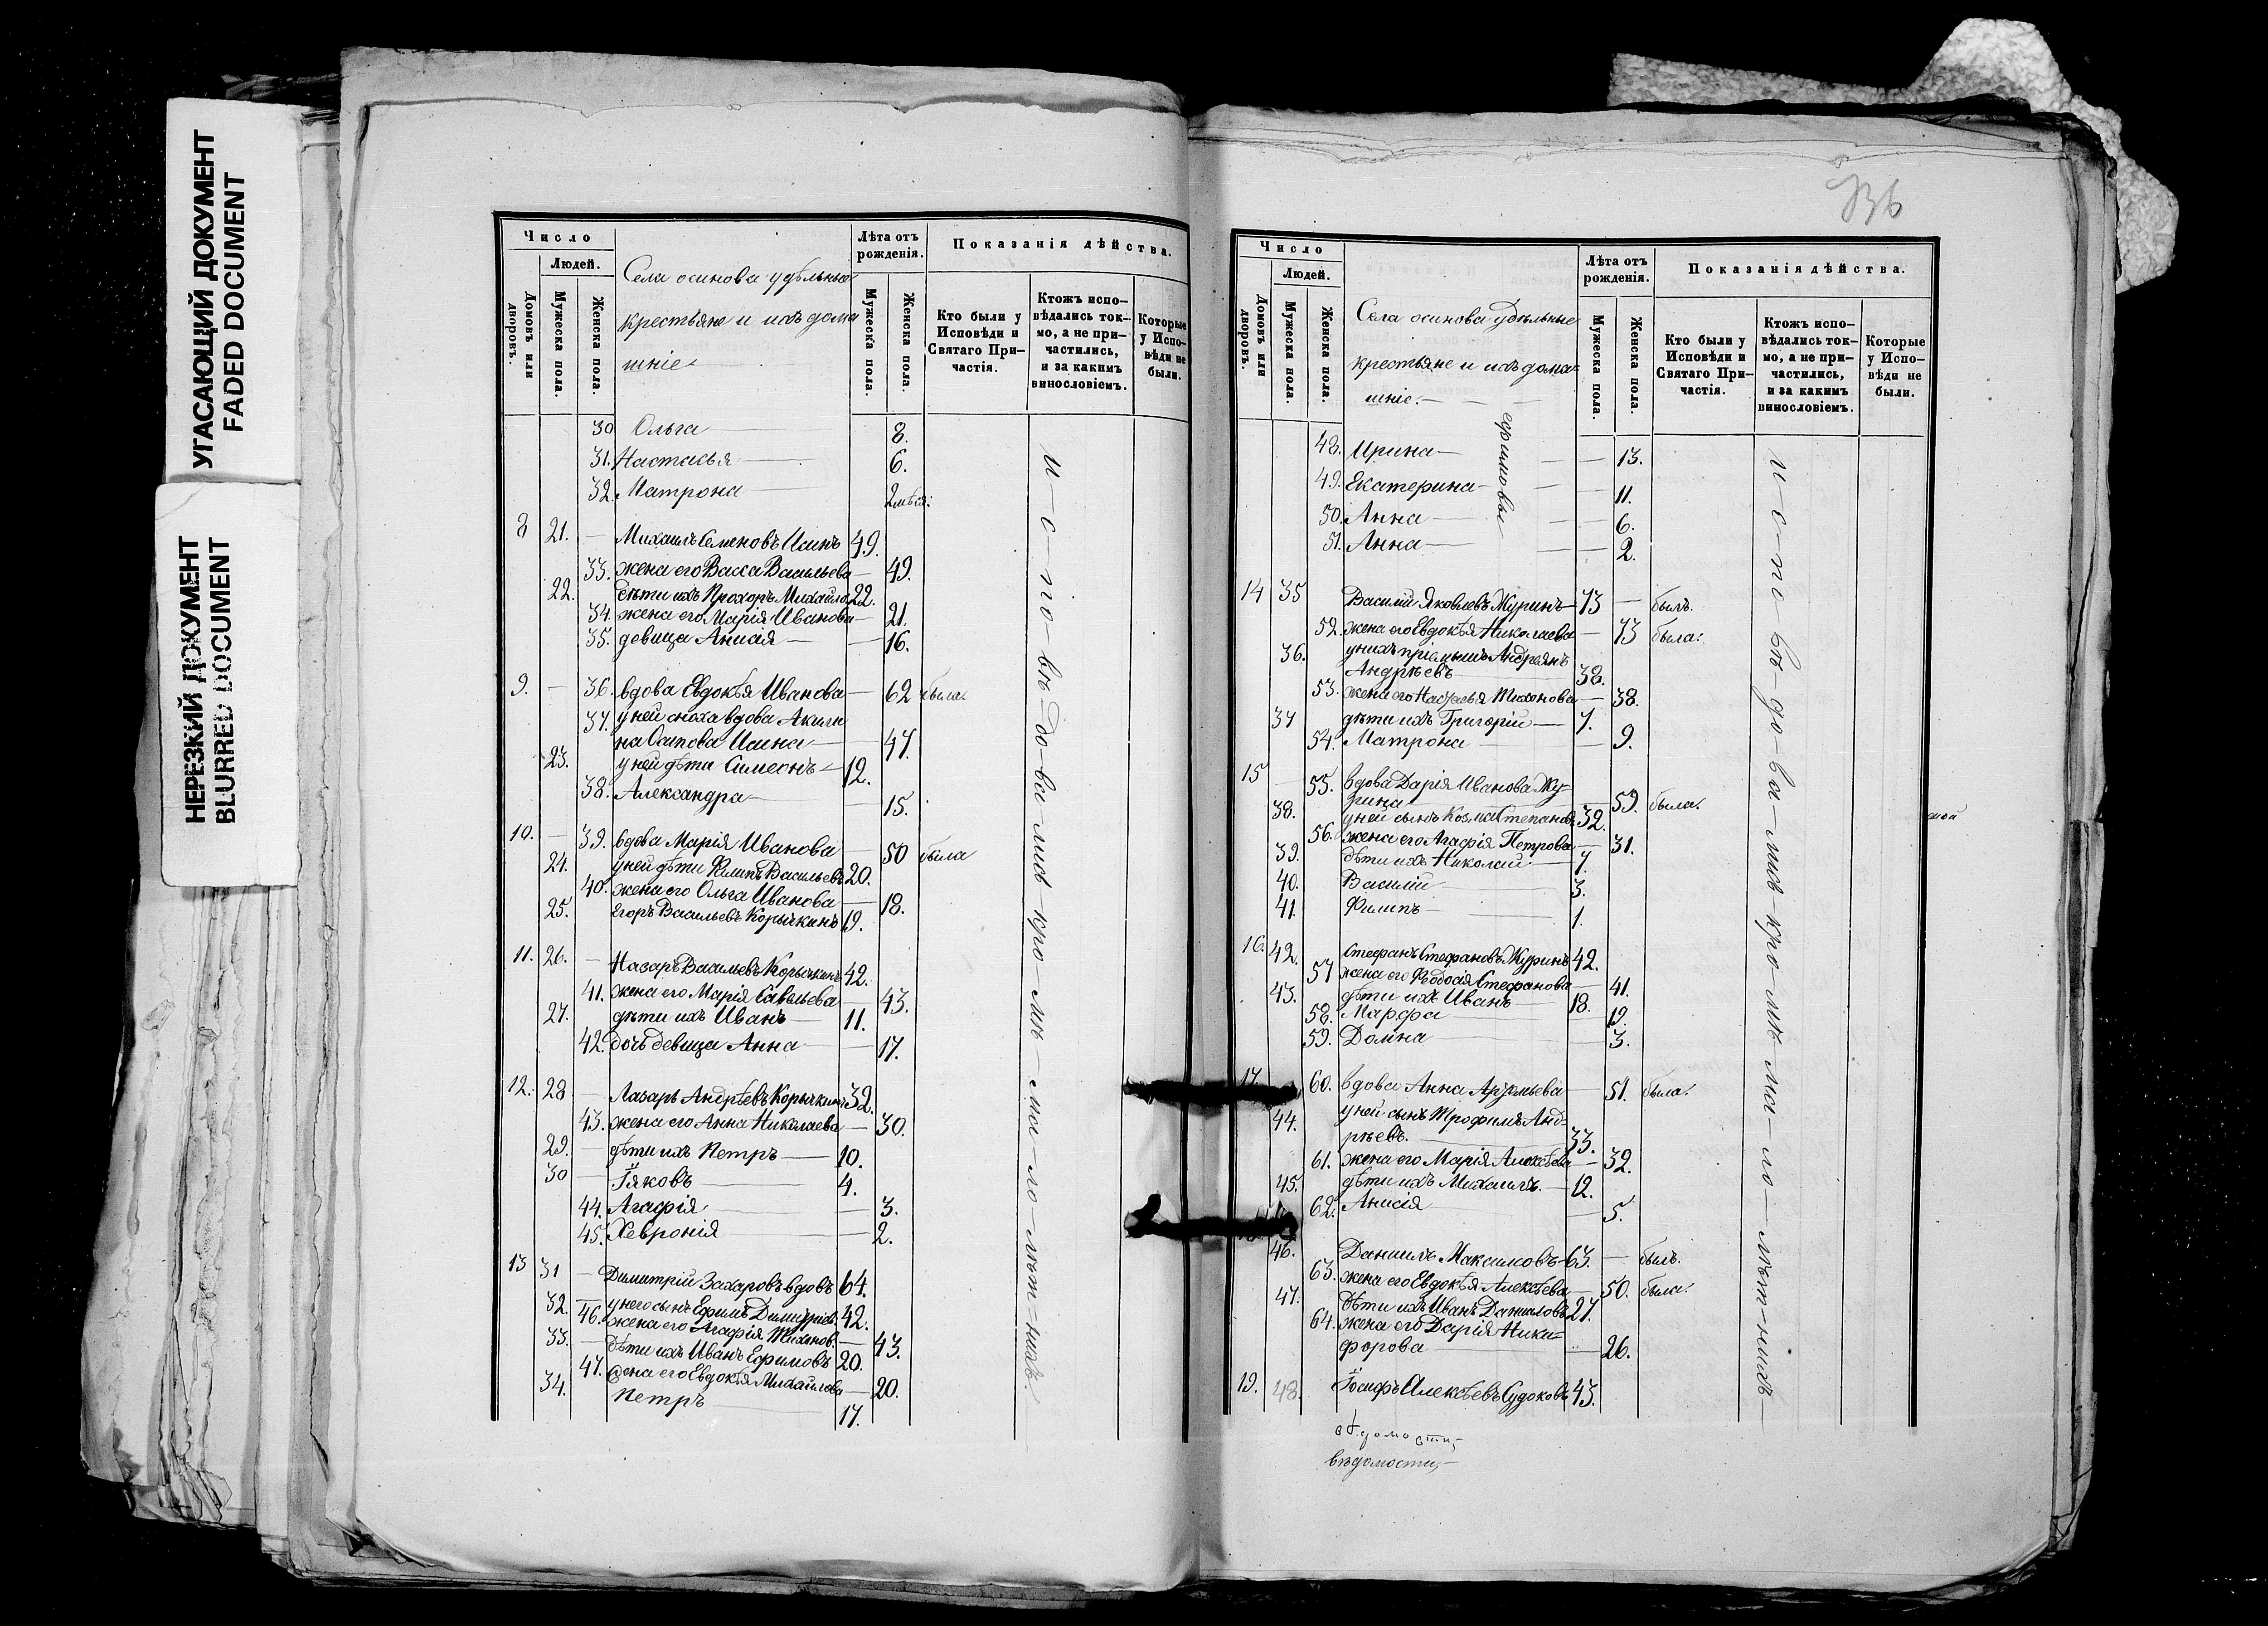 УГАСАЮЩИЙ ДОКУМЕНТ
FADED DOCUMENT
НЕРЕЗКИЙ ДОКУМЕНТ
BLURRED DOCUMENT
Число
Людей.
Домовъ или дворовъ.
Мужеска пола.
Женска пола.
Села осинова удѣльные
крестьяне и ихъ дома
шніе
Лѣта отъ рожденія.
Мужеска пола.
Женска пола.
Показанія дѣйства.
Кто были у Исповѣди и Святаго При-частія.
Ктожъ испо-вѣдались ток-мо, а не при-частились, и за какимъ винословіемъ.
Которые у Испо-вѣди не были.
30 Ольга 8.
31. Настасья 6.
32. Матрона 2 мѣся:
8 21. — Михаилъ Семеновъ Исинъ 49.
33. жена его Васса Васильева — 49.
22. дѣти ихъ Прохоръ Михайло 22.
34. жена его Марія Иванова — 21.
35. девица Анисія — 16.
9. — 36. вдова Евдокѣя Иванова — 62 была.
37. у ней сноха вдова Акили
на Осипова Исина — 47.
23. у ней дѣти Симеонъ — 12.
38. Александра — 15.
10. — 39. вдова Марія Иванова 50 была
24. у ней дѣти Филипъ Васильевъ 20.
40. жена его Ольга Иванова — 18.
25. Егоръ Васильевъ Корычкинъ 19.
11. 26. — Назаръ Васильевъ Корычкинъ 42.
41. жена его Марія Савельева — 43.
27. дѣти ихъ Иванъ — 11.
42. дочь девица Анна — 17.
12. 28 — Лазаръ Андрѣевъ Корычкинъ 32.
43. жена его Анна Николаева — 30.
29. — дѣти ихъ Петръ — 10.
30 — Яковъ 4.
44. Агафія — 3.
45. Хевронія — 2.
13 31 — Димитрій Захаровъ вдовъ 64.
32. — у него сынъ Ефимъ Димитріев. 42.
46. жена его Агафія Тихонов. — 43.
33. — дѣти ихъ Иванъ Ефимовъ 20.
47. жена его Евдокѣя Михайлова — 20.
34. Петръ 17.
и-с-по-вѣ-до-ва-лис кро-мѣ-ма-ло-лѣт-нихъ.
Число
Людей.
Домовъ или дворовъ.
Мужеска пола.
Женска пола.
Села осинова удѣльные
крестьяне и ихъ дома=
шніе. —
Лѣта отъ рожденія.
Мужеска пола.
Женска пола.
Показанія дѣйства.
Кто были у Исповѣди и Святаго При-частія.
Ктожъ испо-вѣдались ток-мо, а не при-частились, и за какимъ винословіемъ.
Которые у Испо-вѣди не были.
48. Ирина — — 13.
49. Екатерина — — 11.
50. Анна — — 6.
51. Анна — — 2.
ефимовы
14 35 Василій Яковлевъ Журинъ — 73 — былъ.
52. жена его Евдокѣя Николаева — 73 была.
36. у нихъ пріемышъ Андреянъ
Андрѣевъ 38.
53. жена его Настасья Тихонова — 38.
37 дѣти ихъ Григорій — 7.
54. Матрона — 9.
15 — 55. вдова Дарія Иванова Жу=
рина 59. была.
38. у ней сынъ Козма Степанов. 32.
56. жена его Агафія Петрова — 31.
39. дѣти ихъ Николай — 7.
40. Василій 3.
41. Филипъ 1.
16. 42. Стефанъ Стефановъ Журинъ 42.
57 жена его Ѳеодосія Стефанова — 41.
43. дѣти ихъ Иванъ — 18.
58. Марфа 19.
59. Домна 3.
17. 60. вдова Анна Артемьева — 51. была.
44. у ней сынъ Трофимъ Анд=
рѣевъ. 33.
61. жена его Марія Алексѣева — 32.
45. дѣти ихъ Михаилъ — 12.
62. Анисія — 5.
46. Даниилъ Максимовъ — 63. — былъ.
63. жена его Евдокѣя Алексѣева — 50. была.
47. дѣти ихъ Иванъ Даниловъ 27.
64. жена его Дарія Ники=
форова — 26.
19. 48. Іосифъ Алексѣевъ Судоковъ 43.
и-с-по-вѣ-до-ва-лис-кро-мѣ ма-ло-лѣт-нихъ —
вѣдомости,